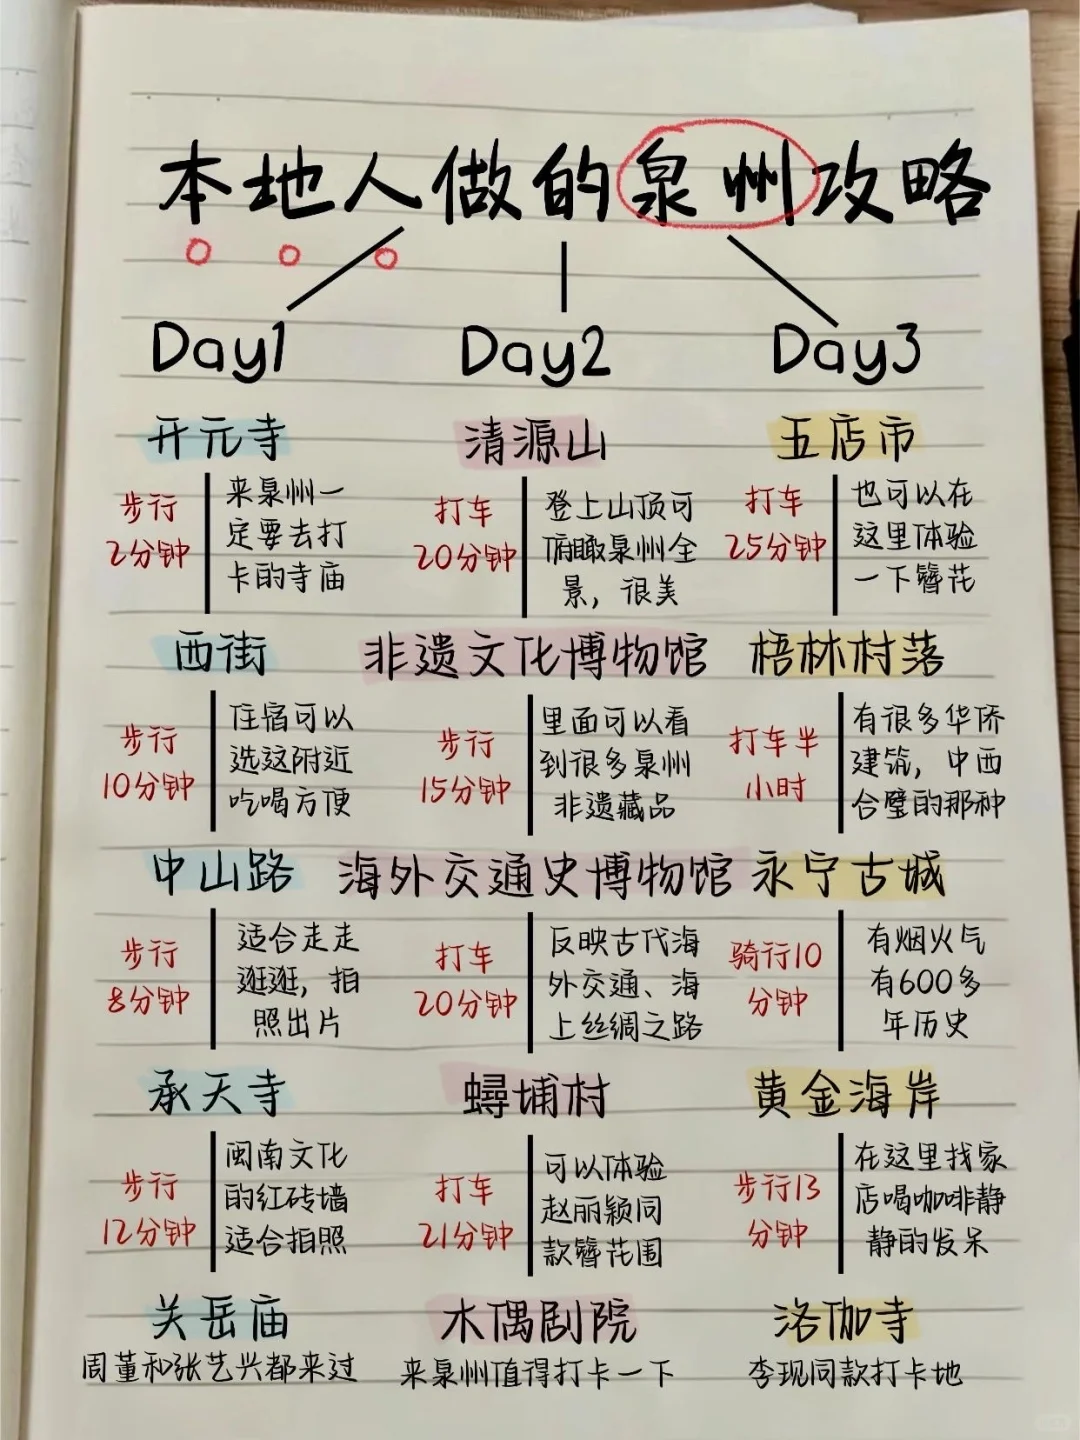 本地人做的泉州攻略
Day1
开元寺
步行
2分钟
来泉州一
定要去打
卡的寺庙
西街
步行
10分钟
住宿可以
选这附近
吃喝方便
中山路
步行
8分钟
适合走走
逛逛，拍
照出片
承天寺
步行
12分钟
闽南文化
的红砖墙
适合拍照
关岳庙
周董和张艺兴都来过
Day2
清源山
打车
20分钟
登上山顶可
俯瞰泉州全
景，很美
非遗文化博物馆
步行
15分钟
里面可以看
到很多泉州
非遗藏品
海外交通史博物馆
打车
20分钟
反映古代海
外交通、海
上丝绸之路
蟳埔村
打车
21分钟
可以体验
赵丽颖同
款簪花围
木偶剧院
来泉州值得打卡一下
Day3
五店市
打车
25分钟
也可以在
这里体验
一下簪花
梧林村落
打车半
小时
有很多华侨
建筑，中西
合璧的那种
永宁古城
骑行10
分钟
有烟火气
有600多
年历史
黄金海岸
步行13
分钟
在这里找家
店喝咖啡静
静的发呆
洛伽寺
李现同款打卡地